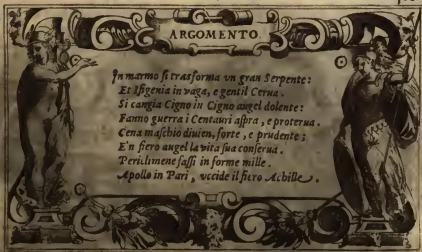 ARGOMENTO
In marmo si trasforma vn gran Serpente:
Et Ifigenia in vaga, e gentil Cerua.
Si cangia Cigno in Cigno augel dolente:
Fanno guerra i Centauri aspra, e proterua.
Cena maschio diuien, forte, e prudente;
E'n fiero augel la vita sua conserua.
Periclimene fassi in forme mille.
Apollo in Pari, vccide il fiero Achille.